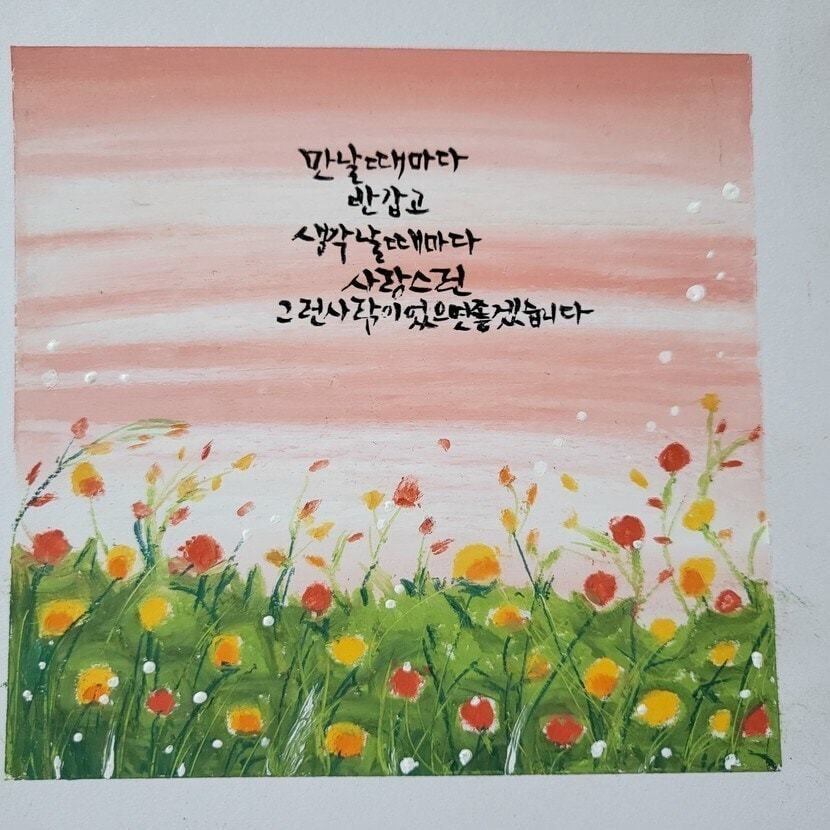 만날때마다
반갑고
생각날때마다
사랑스런
그런사람이었으면좋겠습니다